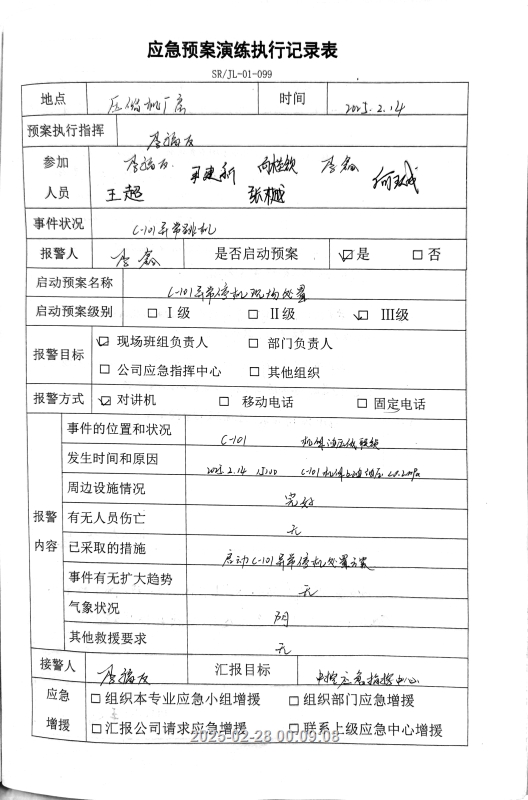 应急预案演练执行记录表
SR/JL-01-099
地点 压缩机厂房 时间 2025.2.14
预案执行指挥 李福友
参加 李福友 王建新 李鑫
人员 王超
事件状况 C-101异常跳机
报警人 李鑫 是否启动预案 ☑是 □否
启动预案名称 C-101异常停机现场处置
启动预案级别 □Ⅰ级 □Ⅱ级 ☑Ⅲ级
报警目标 ☑现场班组负责人 □部门负责人
□公司应急指挥中心 □其他组织
报警方式 ☑对讲机 □移动电话 □固定电话
报警内容
事件的位置和状况 C-101 机组油压低联锁
发生时间和原因 2025.2.14 15:00 C-101机组
周边设施情况 完好
有无人员伤亡 无
已采取的措施 启动C-101异常停机处置方案
事件有无扩大趋势 无
气象状况 阴
其他救援要求 无
接警人 李福友 汇报目标 中控应急指挥中心
应急增援
□组织本专业应急小组增援 □组织部门应急增援
□汇报公司请求应急增援 □联系上级应急中心增援
2025-02-28 00:09:08